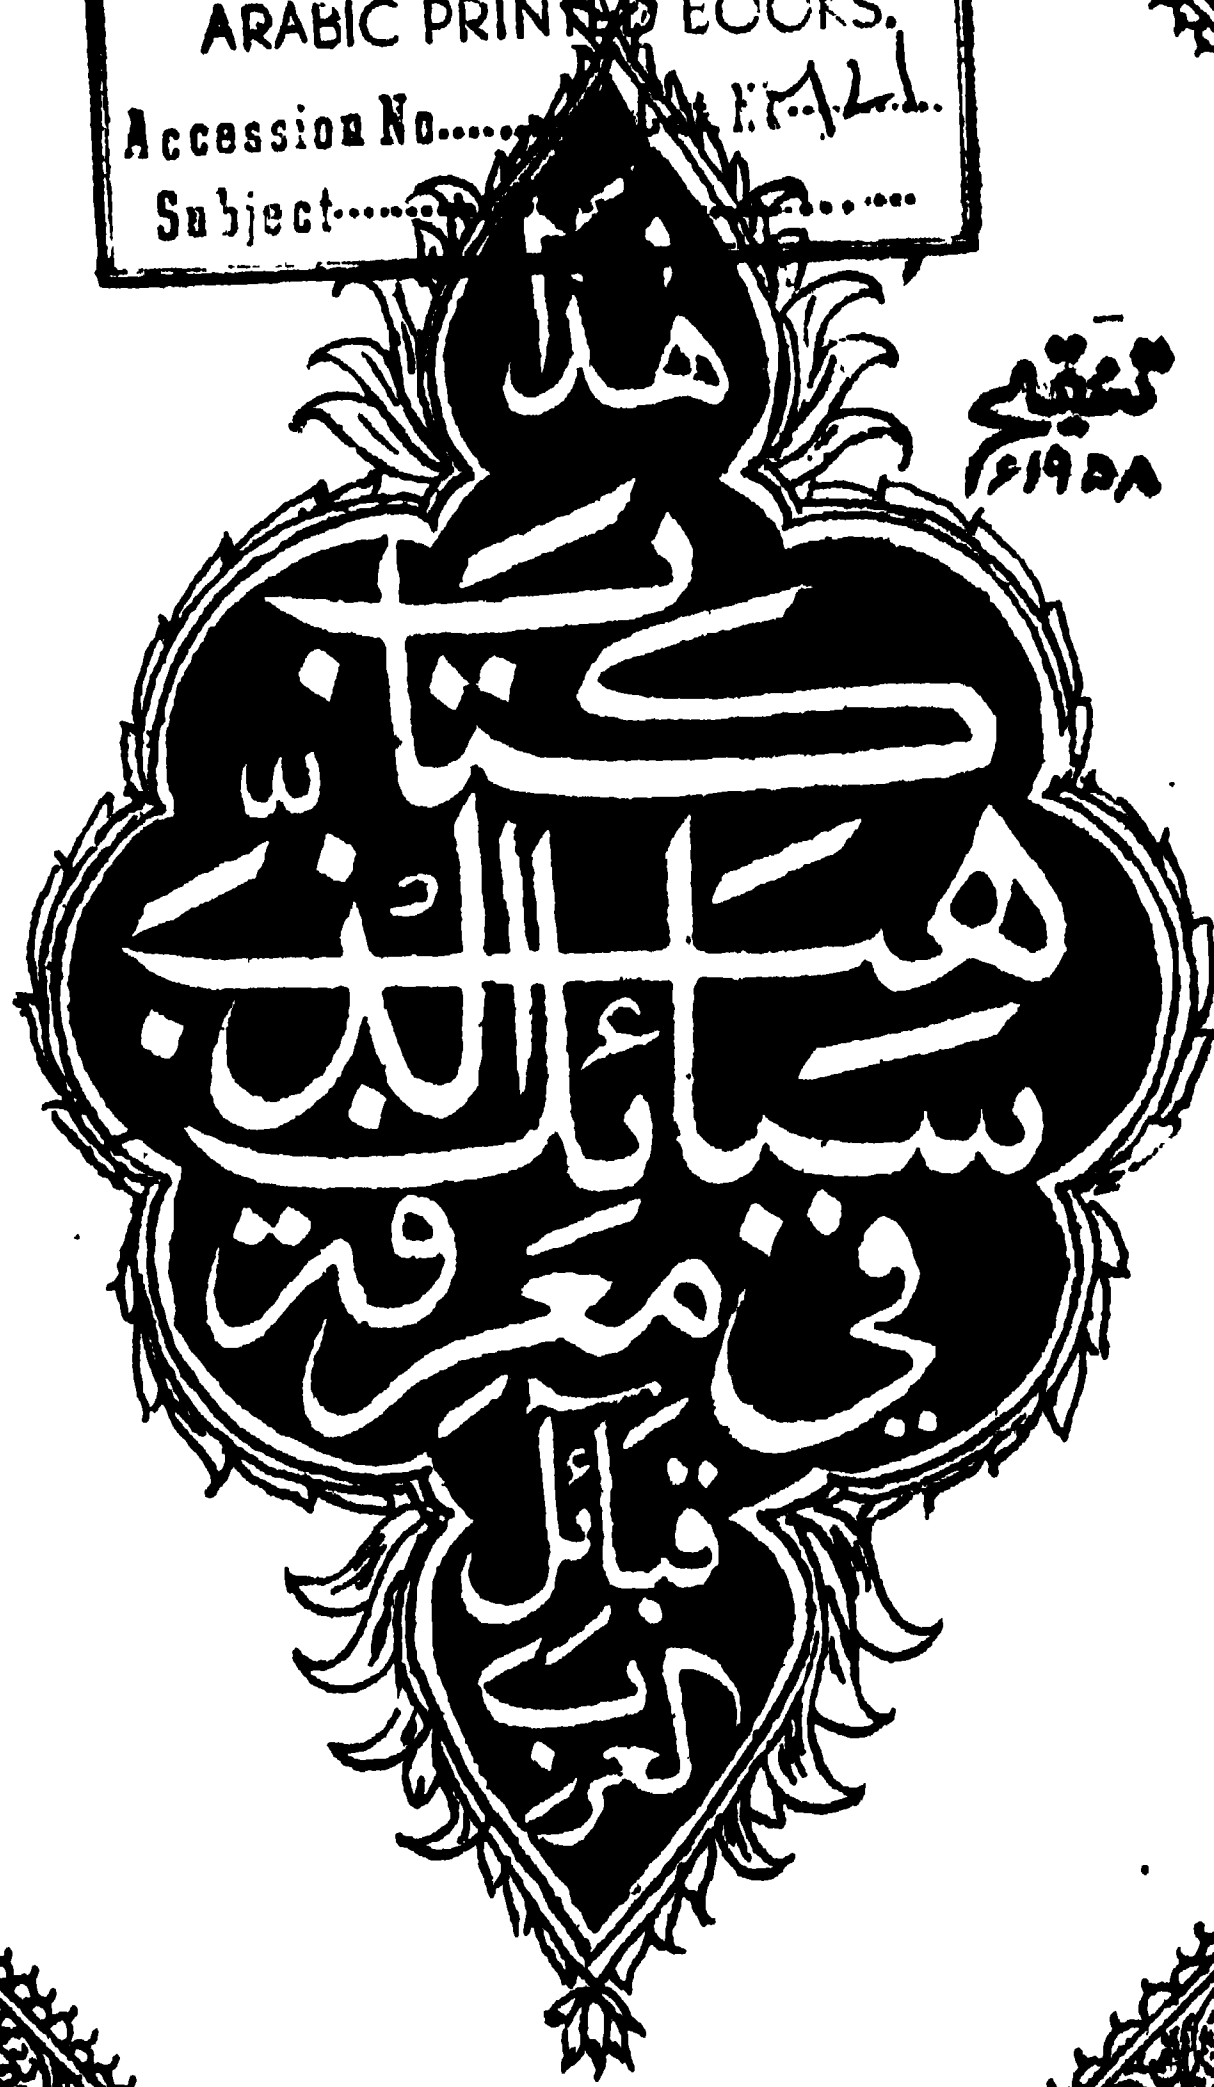 ARABIC PRINTED BOOKS.
Accession No.
Subject
هذا
١٩٥٨ء
كتاب
سبائك الذهب
في معرفة
قبائل
العرب